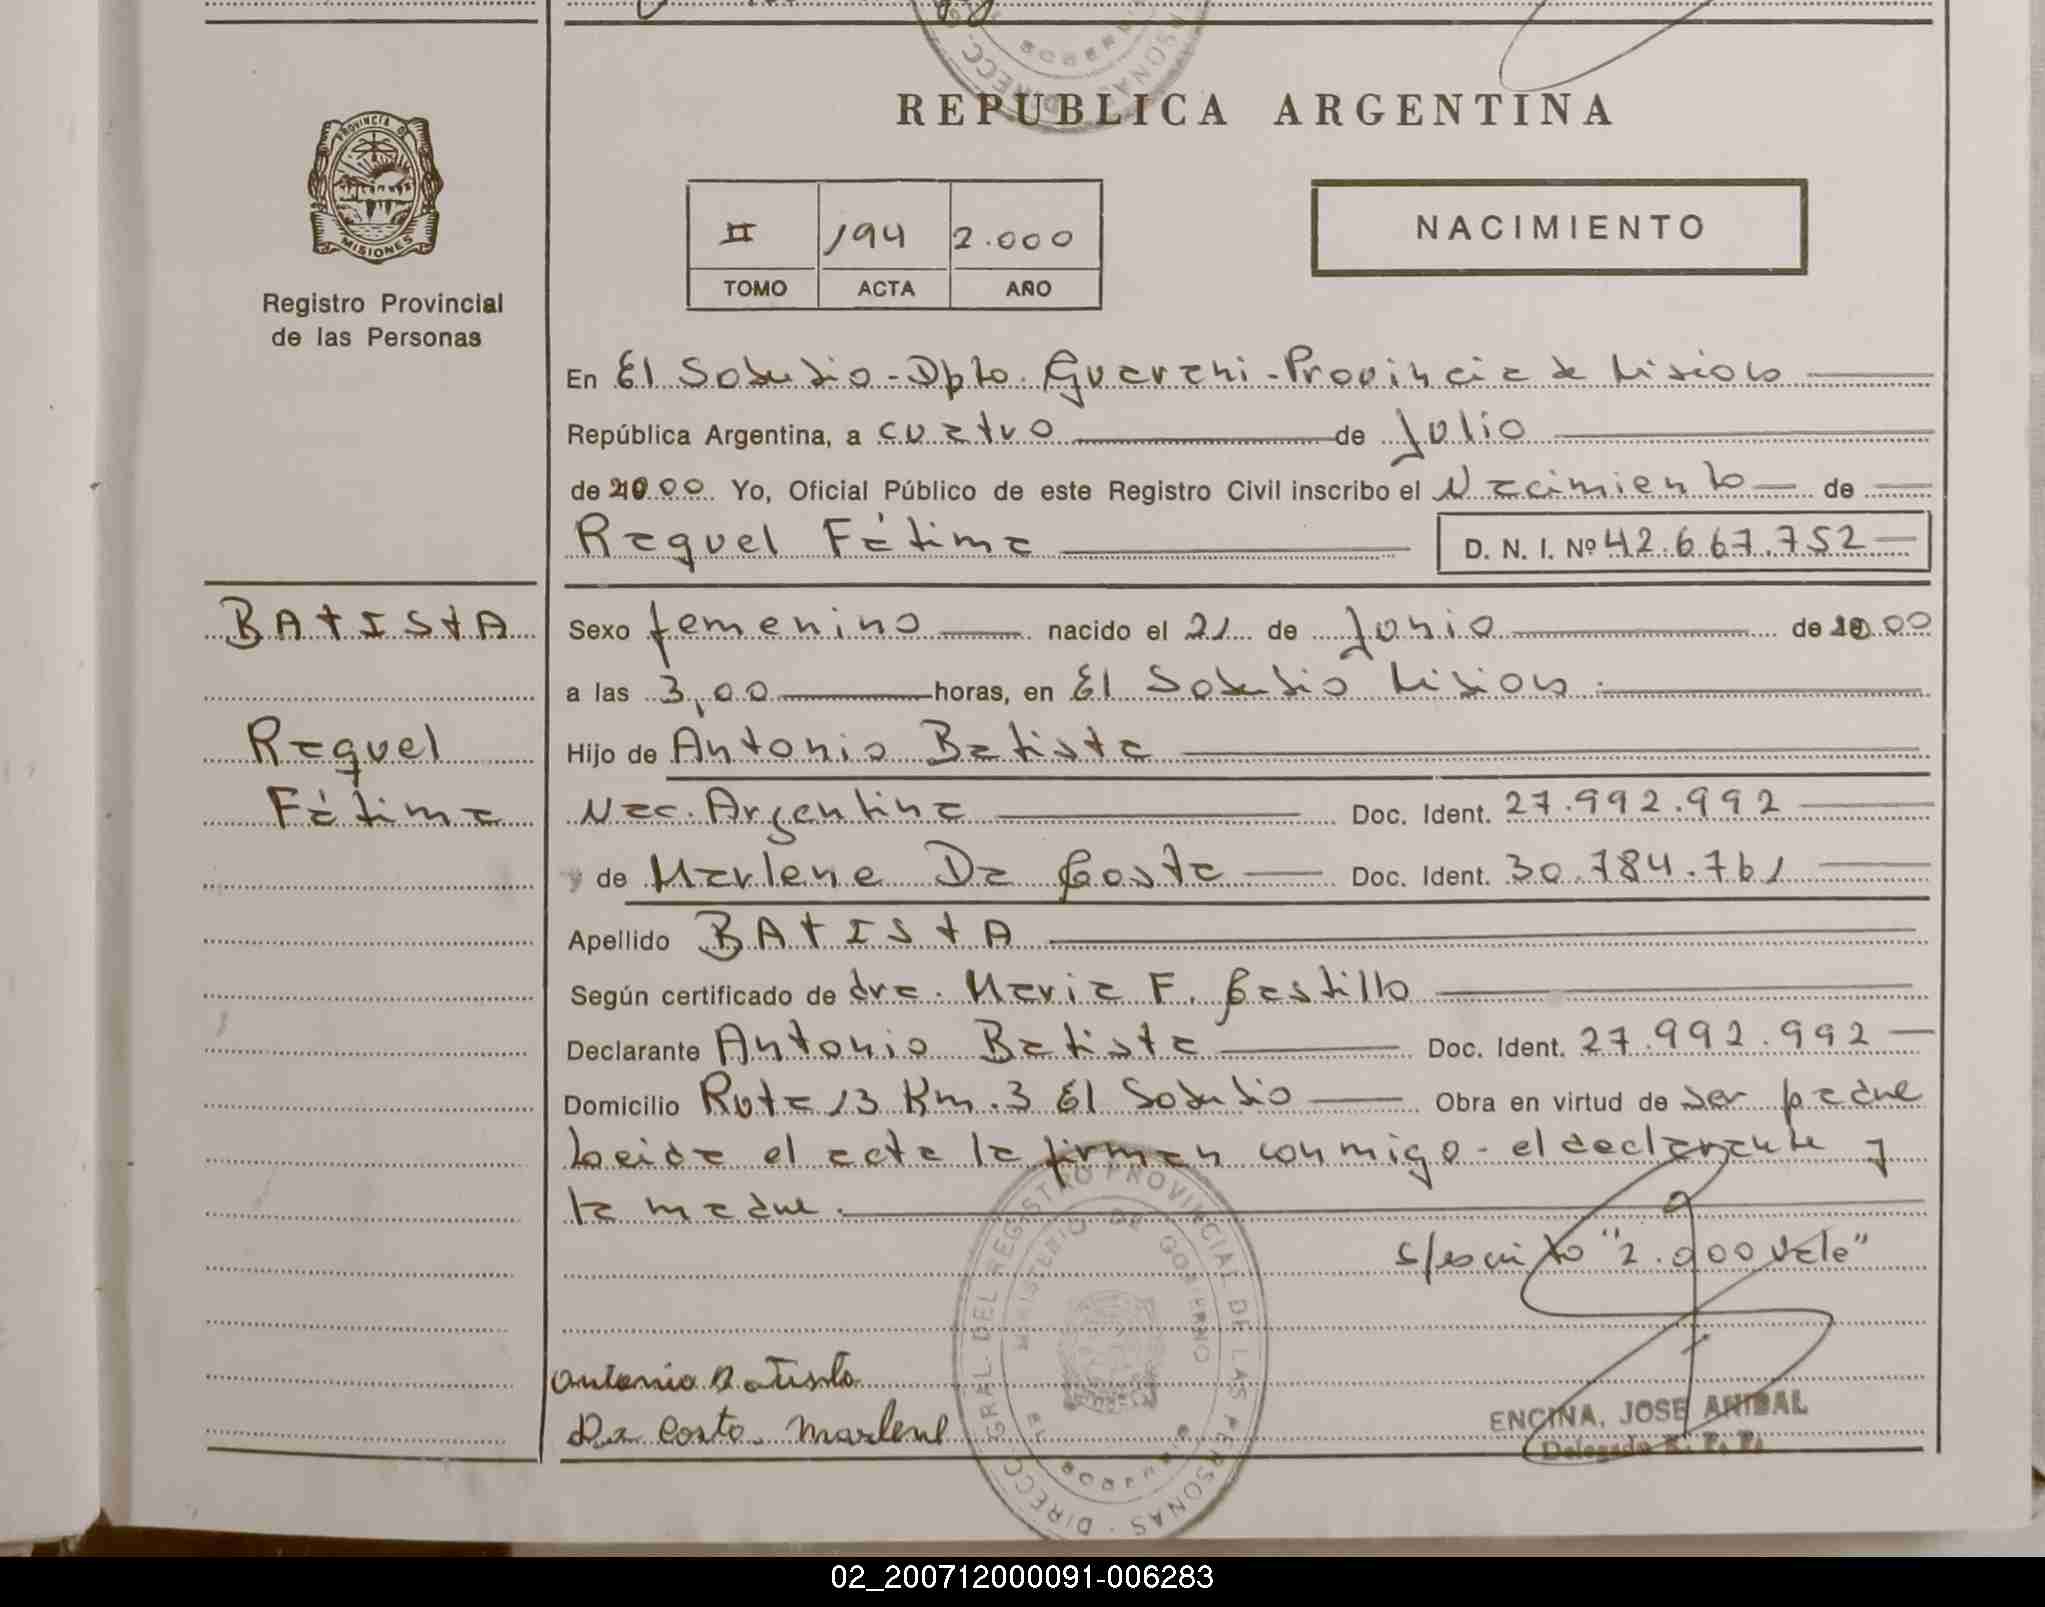 REPUBLICA ARGENTINA
PROVINCIA DE
MISIONES
Registro Provincial
de las Personas
II 194 2.000
TOMO ACTA AÑO
NACIMIENTO
En El Soberbio - Dpto. Guarani - Provincia de Misiones
República Argentina, a cuatro de Julio
de 2000 Yo, Oficial Público de este Registro Civil inscribo el Nacimiento de
Raquel Fátima D. N. I. Nº 42.667.752
BATISTA
Raquel
Fátima
Sexo femenino nacido el 21 de Junio de 2000
a las 3,00 horas, en El Soberbio Misiones.
Hijo de Antonio Batista
Nac. Argentina Doc. Ident. 27.992.992
y de Marlene Da Costa Doc. Ident. 30.784.761
Apellido BATISTA
Según certificado de dra. Maria F. Castillo
Declarante Antonio Batista Doc. Ident. 27.992.992
Domicilio Ruta 13 Km. 3 El Soberbio Obra en virtud de ser padre
Leida el acta la firman conmigo - el declarante y
la madre.
s/escrito "2.000 Vale"
Antonio Batista
Da Costa Marlene
DIRECC. GRAL. DEL REGISTRO PROVINCIAL DE LAS PERSONAS
MINISTERIO DE GOBIERNO
ENCINA, JOSE ANIBAL
Delegado R. P. P.
02_200712000091-006283